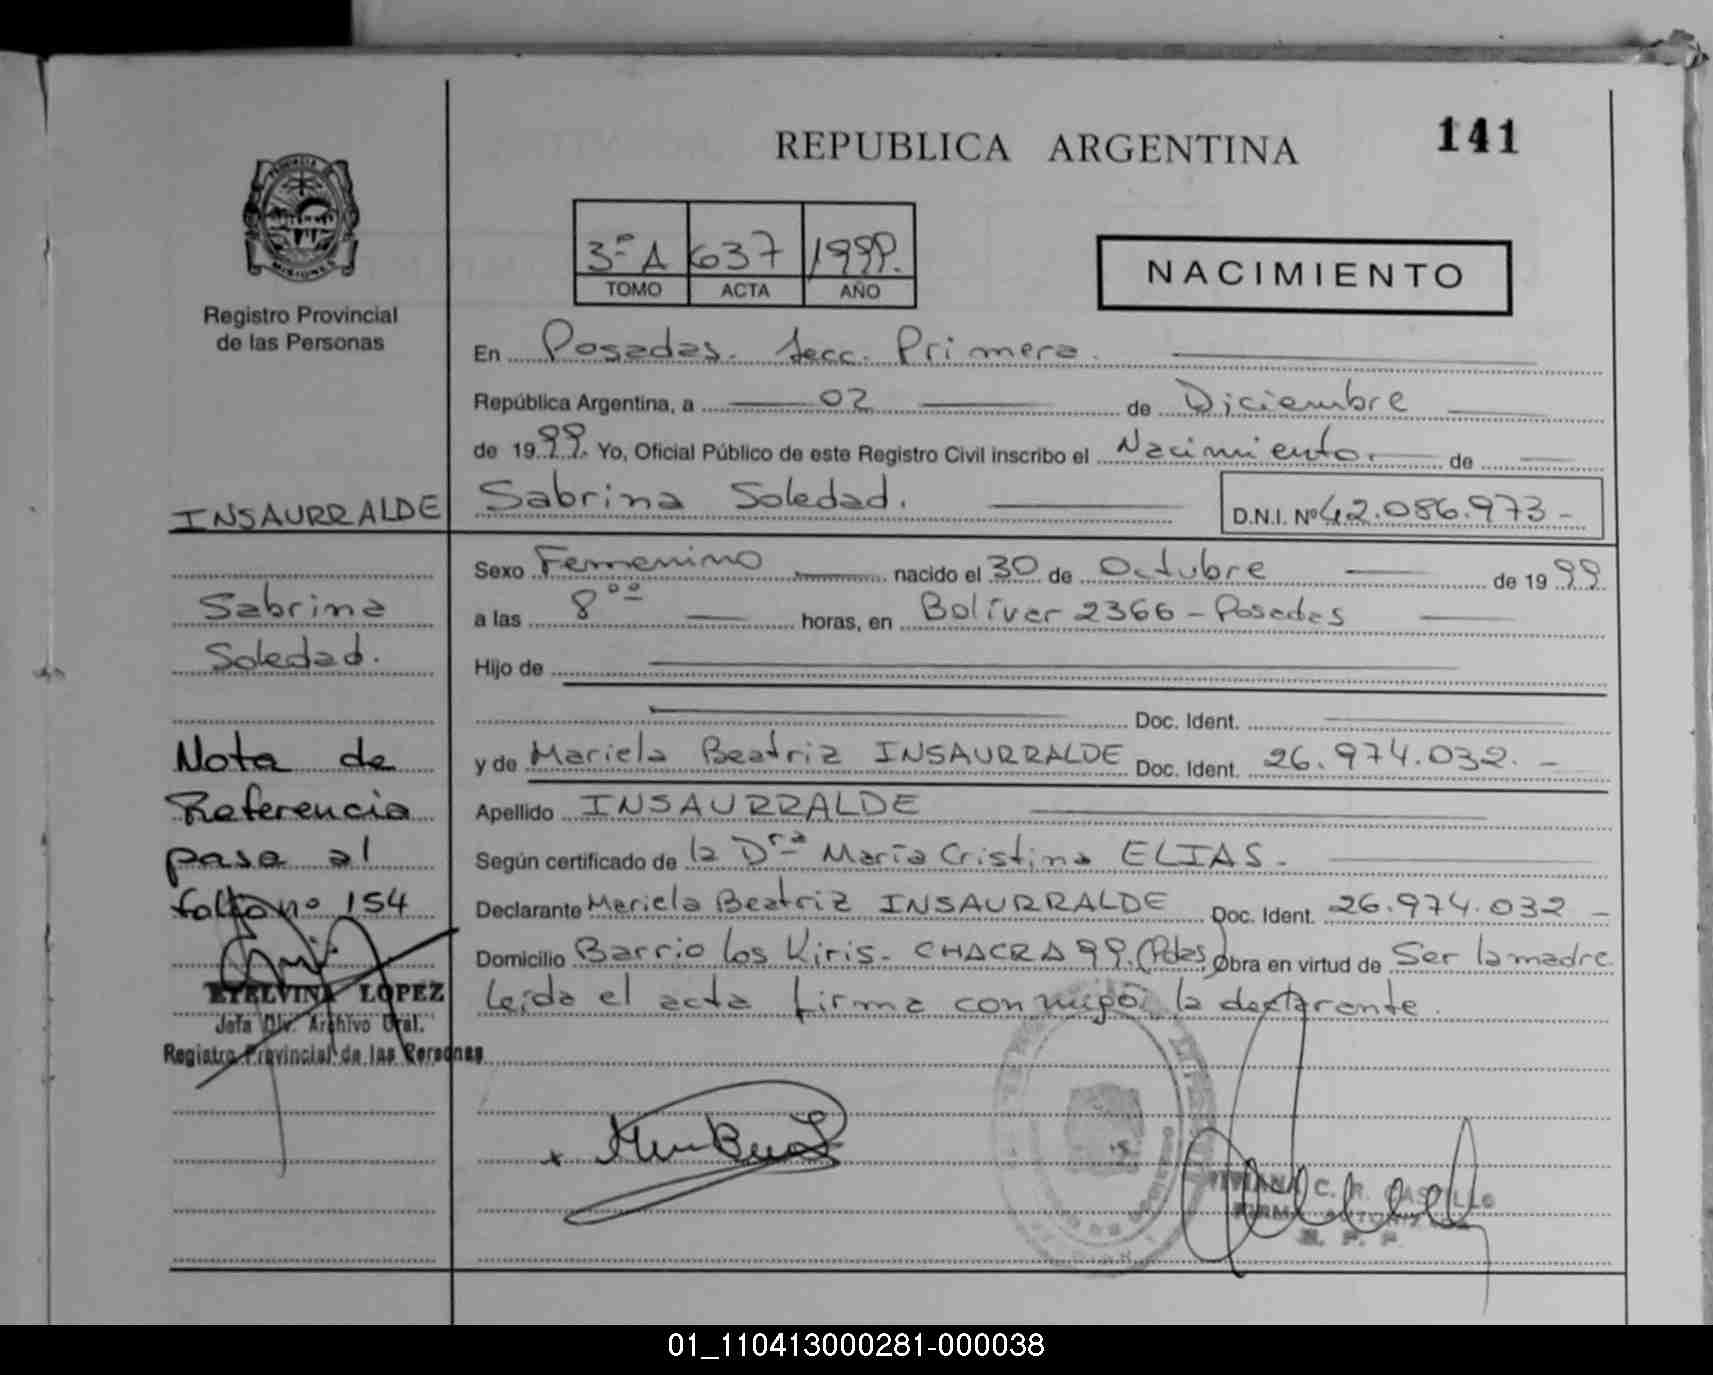 REPUBLICA ARGENTINA
141
PROVINCIA DE
MISIONES
Registro Provincial
de las Personas
3º A 637 1999.
TOMO ACTA AÑO
NACIMIENTO
En Posadas. Secc. Primera.
República Argentina, a 02 de Diciembre
de 1999. Yo, Oficial Público de este Registro Civil inscribo el Nacimiento. de
INSAURRALDE
Sabrina Soledad.
D.N.I. Nº 42.086.973-
Sabrina
Soledad.
Sexo Femenino nacido el 30 de Octubre de 1999
a las 8ºº horas, en Bolívar 2366 - Posadas
Hijo de
Doc. Ident.
y de Mariela Beatriz INSAURRALDE Doc. Ident. 26.974.032. -
Apellido INSAURRALDE
Según certificado de la Dra María Cristina ELIAS.
Declarante Mariela Beatriz INSAURRALDE Doc. Ident. 26.974.032 -
Domicilio Barrio los Kiris- CHACRA 99. (Pdas) Obra en virtud de Ser la madre
Leída el acta firma conmigo la declarante.
Nota de
Referencia
pasa al
folio nº 154
ETELVINA LOPEZ
Jefa Div. Archivo Gral.
Registro Provincial de las Personas
C. R. CASTILLO
R. P. P.
01_110413000281-000038